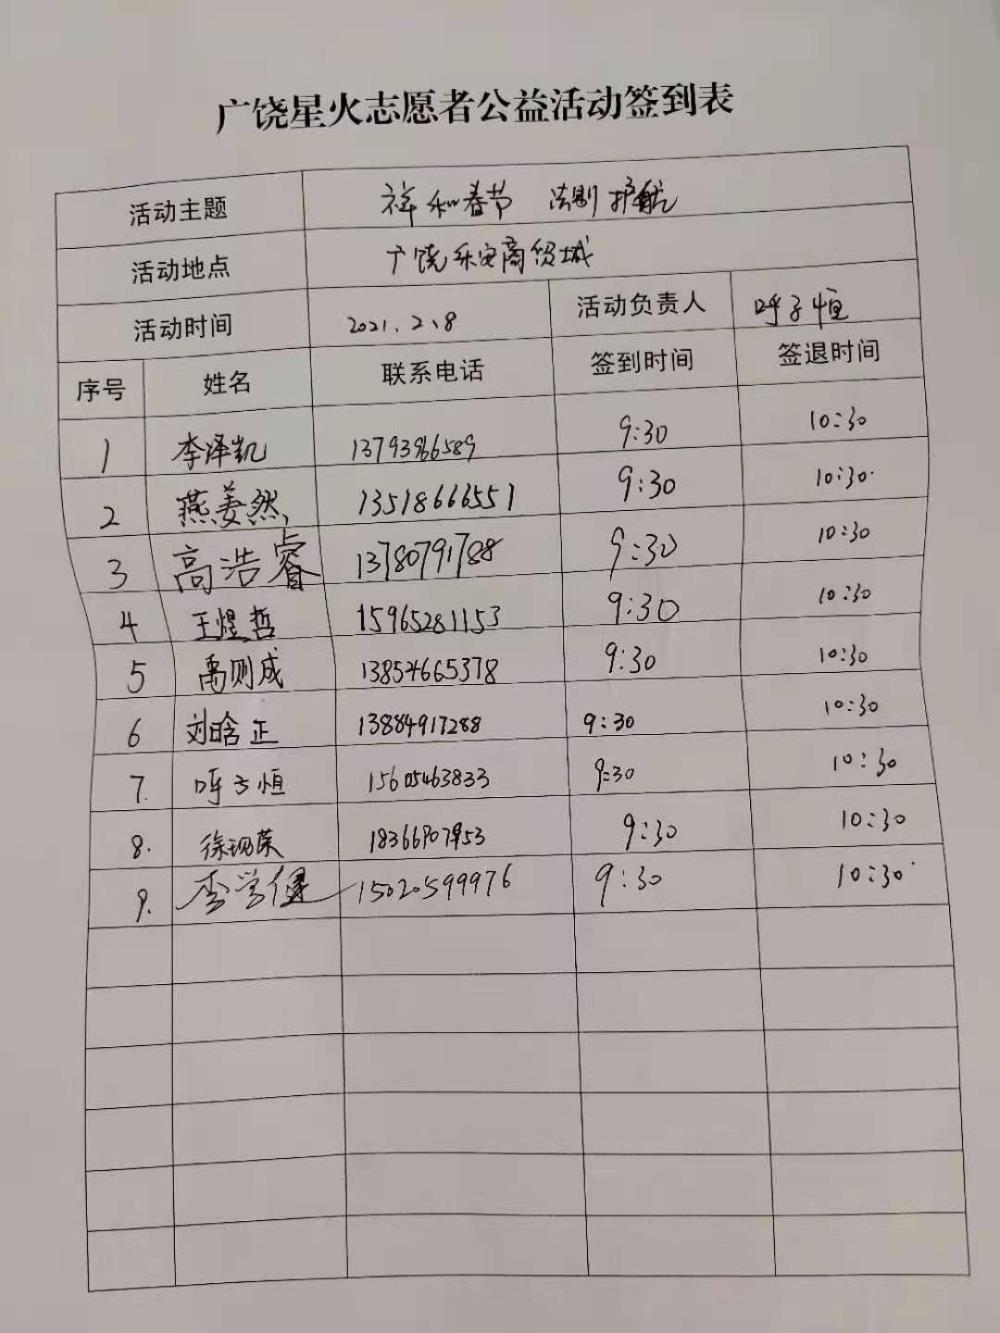 广饶星火志愿者公益活动签到表
活动主题 祥和春节 法制护航
活动地点 广饶乐安商贸城
活动时间 2021.2、8 活动负责人 呼子恒
序号 姓名 联系电话 签到时间 签退时间
1 李泽凯 13793966589 9:30 10:30
2 燕姜然 13518666551 9:30 10:30
3 高浩睿 13780791788 9:30 10:30
4 王煜哲 15965281153 9:30 10:30
5 禹则成 13854665378 9:30 10:30
6 刘晗正 13884917288 9:30 10:30
7. 呼子恒 15605463833 9:30 10:30
8. 徐现荣 18366907953 9:30 10:30
9. 李学健 15020599976 9:30 10:30